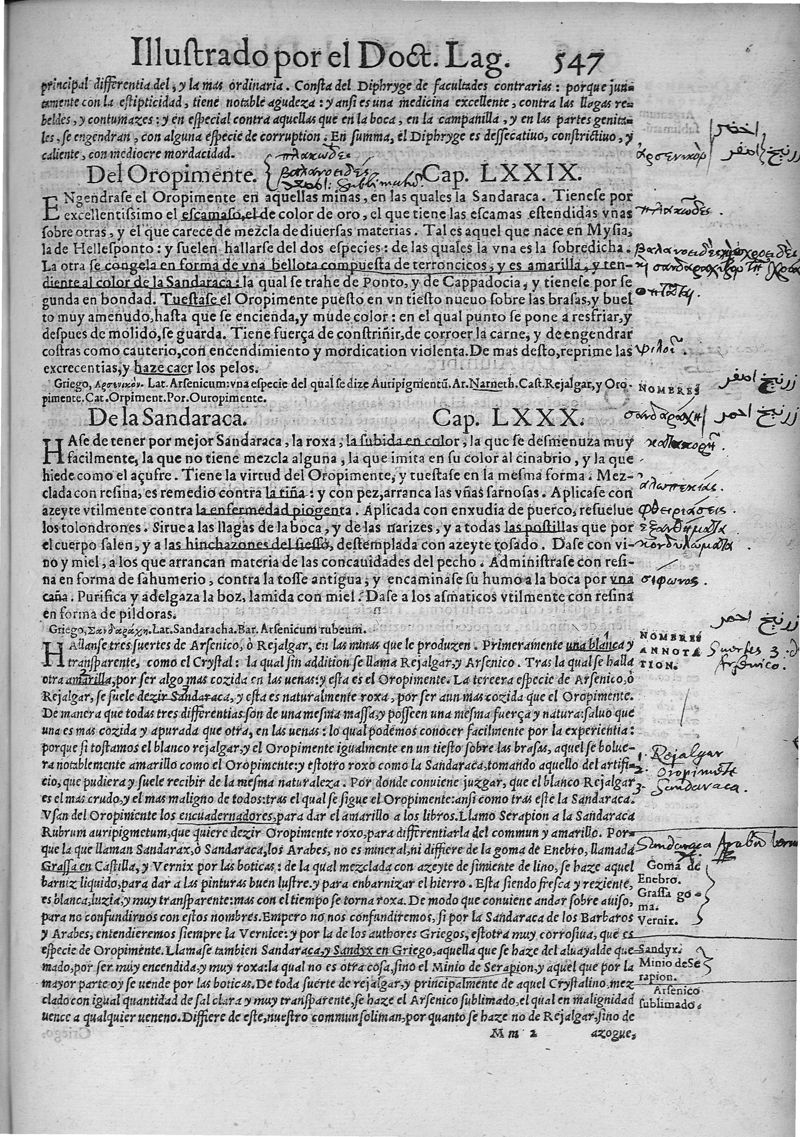 Illustrado por el Doct. Lag. 547
principal differentia del, y la mas ordinaria. Consta del Diphryge de facultades contrarias: porque jun-
tamente con la estipticidad, tiene notable agudeza: y ansi es una medicina excellente, contra las llagas re-
beldes, y contumazes: y en especial contra aquellas que en la boca, en la campanilla, y en las partes genita-
les, se engendran, con alguna especie de corruption. En summa, el Diphryge es dessecatiuo, constrictiuo, y
caliente, con mediocre mordacidad.
πλακώδες
βαλανοειδές
Del Oropimente. Cap. LXXIX.
ENgendrase el Oropimente en aquellas minas, en las quales la Sandaraca. Tienese por
excellentissimo el escamoso, el de color de oro, el que tiene las escamas estendidas vnas
sobre otras, y el que carece de mezcla de diuersas materias. Tal es aquel que nace en Mysia,
la de Hellesponto: y suelen hallarse del dos especies: de las quales la vna es la sobredicha.
La otra se congela en forma de vna bellota compuesta de terroncicos, y es amarilla, y ten-
diente al color de la Sandaraca: la qual se trahe de Ponto, y de Cappadocia, y tienese por se
gunda en bondad. Tuestase el Oropimente puesto en vn tiesto nueuo sobre las brasas, y buel
to muy amenudo, hasta que se encienda, y mude color: en el qual punto se pone a resfriar, y
despues de molido, se guarda. Tiene fuerça de constriñir, de corroer la carne, y de engendrar
costras como cauterio, con encendimiento y mordication violenta. De mas desto, reprime las
excrecentias, y haze caer los pelos.
Griego, Αρσενικὸν. Lat. Arsenicum: vna especie del qual se dize Auripigmentū. Ar. Narneth. Cast. Rejalgar, y Oro-
pimente. Cat. Orpiment. Por. Ouropimente.
De la Sandaraca. Cap. LXXX.
HAse de tener por mejor Sandaraca, la roxa; la subida en color, la que se desmenuza muy
facilmente, la que no tiene mezcla alguna, la que imita en su color al cinabrio, y la que
hiede como el açufre. Tiene la virtud del Oropimente, y tuestase en la mesma forma. Mez-
clada con resina, es remedio contra la tiña: y con pez, arranca las vñas sarnosas. Aplicase con
azeyte vtilmente contra la enfermedad piogenta. Aplicada con enxudia de puerco, resuelue
los tolondrones. Sirue a las llagas de la boca, y de las narizes, y a todas las postillas que por
el cuerpo salen, y a las hinchazones del siesso, destemplada con azeyte rosado. Dase con vi-
no y miel, a los que arrancan materia de las concauidades del pecho. Administrase con resi-
na en forma de sahumerio, contra la tosse antigua, y encaminase su humo a la boca por vna
caña. Purifica y adelgaza la boz, lamida con miel. Dase a los asmaticos vtilmente con resina
en forma de pildoras.
Griego, Σανδαράχη. Lat. Sandaracha. Bar. Arsenicum rubeum.
HAllanse tres suertes de Arsenico, ò Rejalgar, en las minas que le produzen. Primeramente una blanca y
transparente, como el Crystal: la qual sin addition se llama Rejalgar, y Arsenico. Tras la qual se halla
otra amarilla, por ser algo mas cozida en las uenas: y esta es el Oropimente. La tercera especie de Arsenico, ò
Rejalgar, se suele dezir Sandaraca, y esta es naturalmente roxa, por ser aun mas cozida que el Oropimente.
De manera que todas tres differentias son de una mesma massa, y posseen una mesma fuerça y natura: saluo que
una es mas cozida y apurada que otra, en las uenas: lo qual podemos conocer facilmente por la experientia:
porque si tostamos el blanco rejalgar, y el Oropimente igualmente en un tiesto sobre las brasas, aquel se bolue-
ra notablemente amarillo como el Oropimente: y estotro roxo como la Sandaraca, tomando aquello del artifi-
cio, que pudiera y suele recibir de la mesma naturaleza. Por donde conuiene juzgar, que el blanco Rejalgar
es el mas crudo, y el mas maligno de todos: tras el qual se sigue el Oropimente: ansi como tras este la Sandaraca.
Vsan del Oropimente los encuadernadores, para dar el amarillo a los libros. Llamo Serapion a la Sandaraca
Rubrum auripigmetum, que quiere dezir Oropimente roxo, para differentiarla del commun y amarillo. Por-
que la que llaman Sandarax, ò Sandaraca, los Arabes, no es mineral, ni differe de la goma de Enebro, llamada
Grassa en Castilla, y Vernix por las boticas: de la qual mezclada con azeyte de simiente de lino, se haze aquel
barniz liquido, para dar a las pinturas buen lustre, y para enbarnizar el hierro. Esta siendo fresca y reziente,
es blanca, luzia, y muy transparente: mas con el tiempo se torna roxa. De modo que conuiene andar sobre auiso,
para no confundirnos con estos nombres. Empero no nos confundiremos, si por la Sandaraca de los Barbaros
y Arabes, entendieremos siempre la Vernice: y por la de los authores Griegos, estotra muy corrosiua, que es
especie de Oropimente. Llamase tambien Sandaraca, y Sandyx en Griego, aquella que se haze del aluayalde que-
mado, por ser muy encendida, y muy roxa: la qual no es otra cosa, sino el Minio de Serapion, y aquel que por la
mayor parte oy se uende por las boticas. De toda suerte de rejalgar, y principalmente de aquel Crystalino, mez
clado con igual quantidad de sal clara y muy transparente, se haze el Arsenico sublimado, el qual en malignidad
uence a qualquier ueneno. Differe de este, nuestro commun soliman, por quanto se haze no de Rejalgar, sino de
Mm 2 azogue,
زرنيخ اصفر
احمر
ἀρσενικὸν
πλακῶδες.
زرنيخ اصفر
NOMBRES
زرنيخ احمر
σανδαράχη
κατακορῆ
ἀλωπεκίας.
φθειριάσεις
ἐξανθήματα
κονδυλώματα
σίφωνος.
زرنيخ احمر
NOMBRES
ANNOTA
TION.
Suertes 3. d
Arsenico.
1. Rejalgar
2. Oropimēte
3. Sandaraca.
Sandaraca Arabū
Goma de
Enebro.
Grassa go-
ma.
Vernix.
Sandyx.
Minio de Se
rapion.
Arsenico
sublimado.